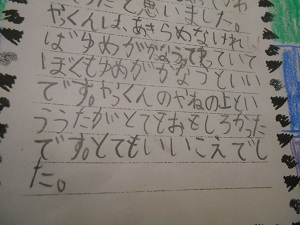 たと思いました。
やっくんは、あきらめなけれ
ばゆめがかなうってわっていて
ぼくもゆめがかなうといい
です。やっくんのやねの上とい
ううたがとてもおもしろかった
です。とてもいいこえでし
た。